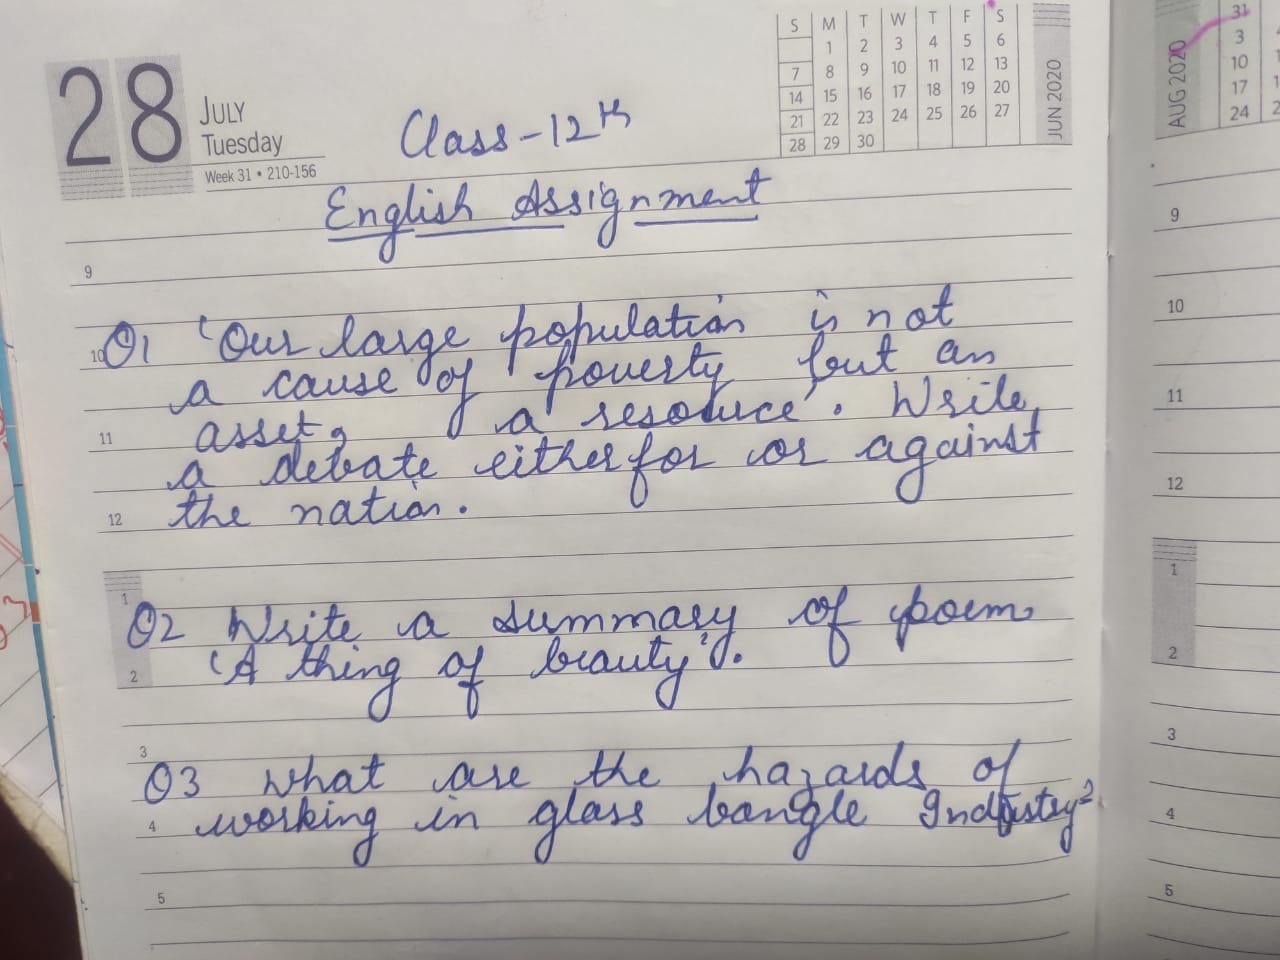 28
JULY
Tuesday
Week 31 • 210-156
S M T W T F S
1 2 3 4 5 6
7 8 9 10 11 12 13
14 15 16 17 18 19 20
21 22 23 24 25 26 27
28 29 30
JUN 2020
Class-12th
English Assignment
9
Q1 'Our large population is not
10
a cause of poverty but an
asset, a resource'. Write
11
a debate either for or against
the nation.
12
1
Q2 Write a summary of poem
'A thing of beauty'.
2
3
Q3 What are the hazards of
working in glass bangle Industry?
4
5
AUG 2020
31
3
10
17
24
9
10
11
12
1
2
3
4
5